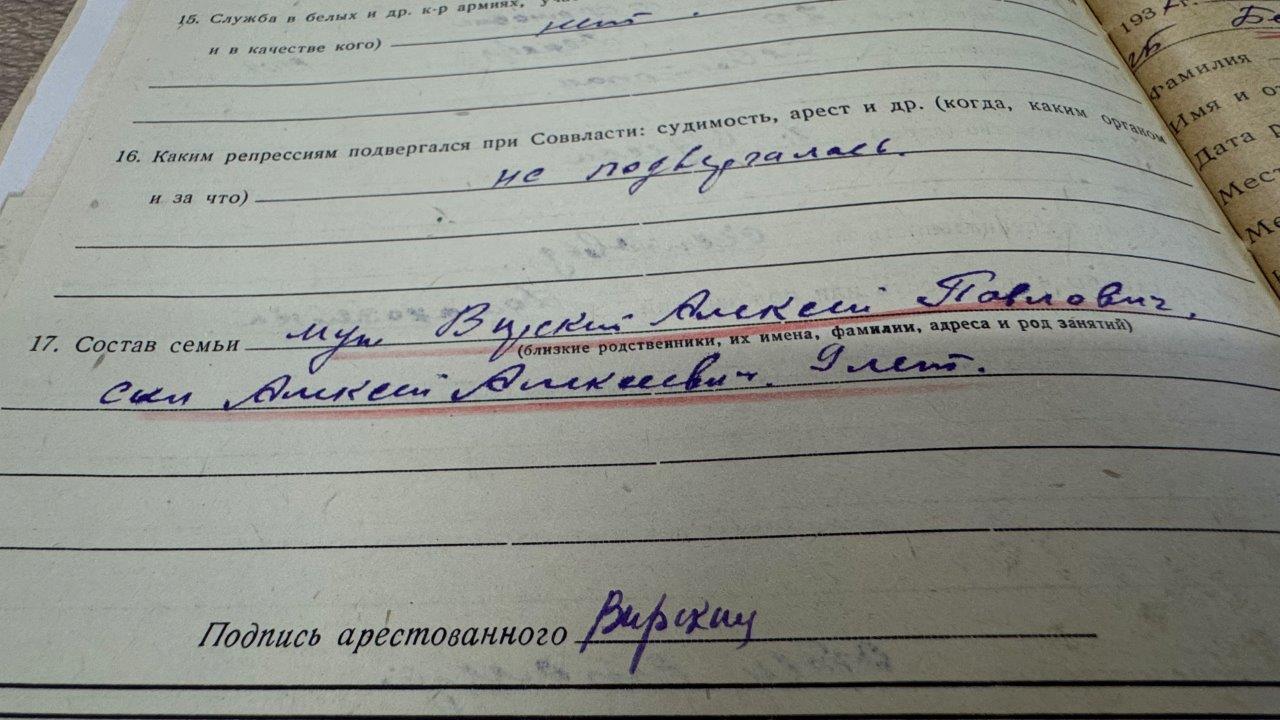 15. Служба в белых и др. к-р армиях,
и в качестве кого) нет.
16. Каким репрессиям подвергался при Соввласти: судимость, арест и др. (когда, каким органом
и за что) не подвергалась.
17. Состав семьи муж Вирский Алексей Павлович,
(близкие родственники, их имена, фамилии, адреса и род занятий)
сын Алексей Алексеевич. 9 лет.
Подпись арестованного
193 г.
Фамилия
Имя и от
Дата р
Мест